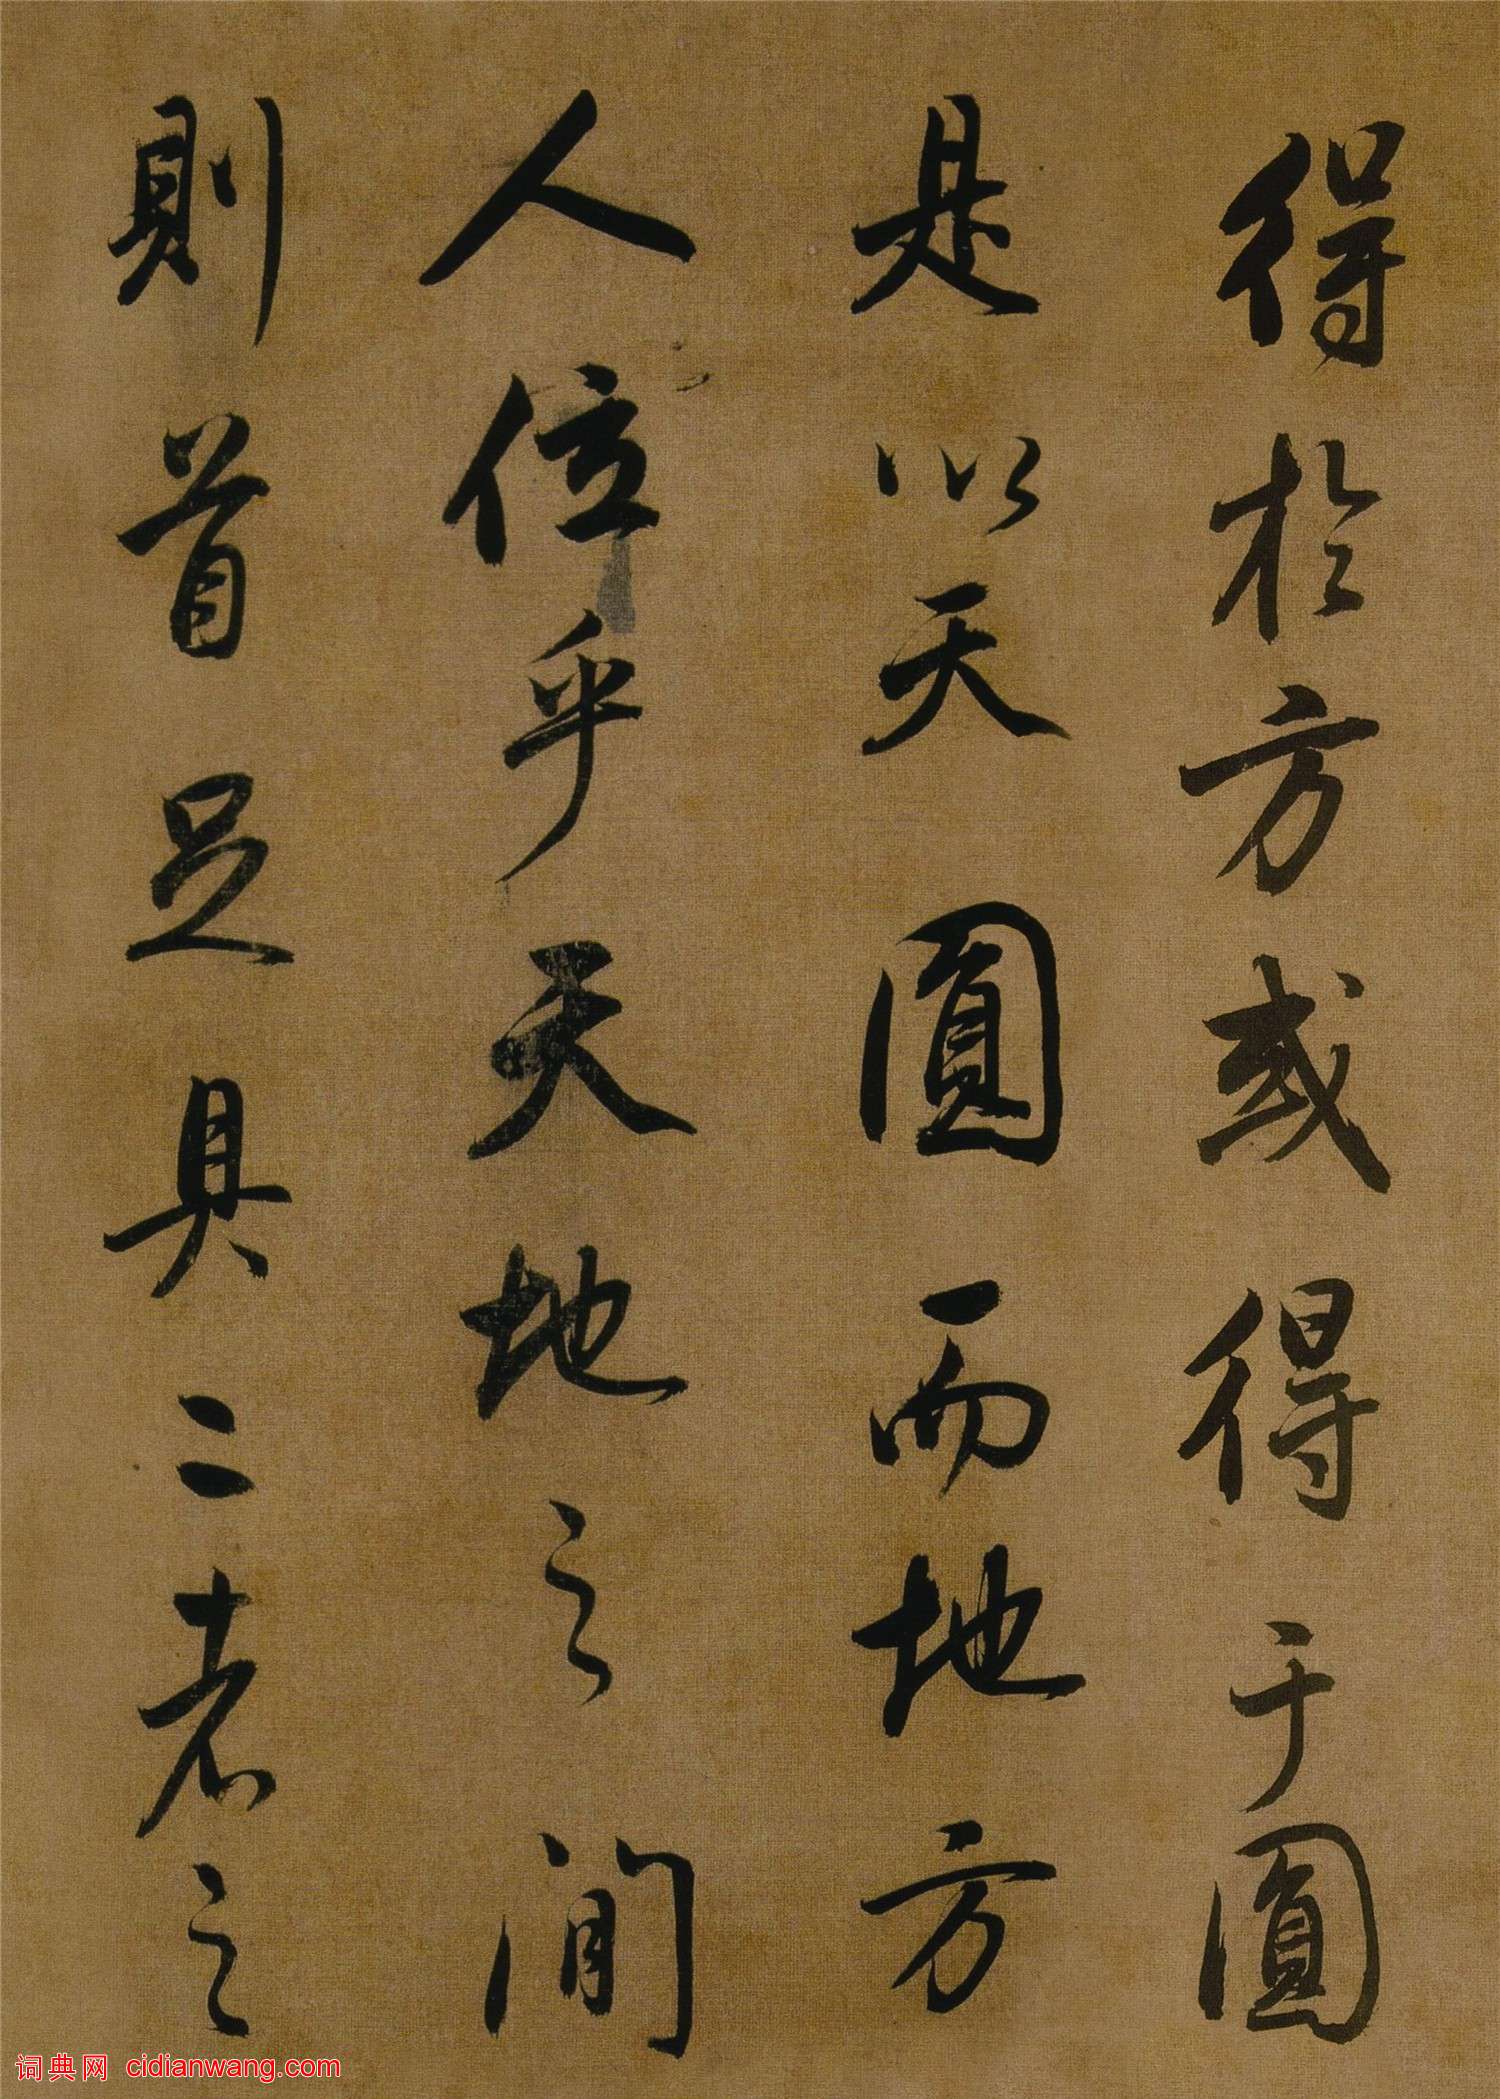 得於方或得于圓
是以天圓而地方
人位乎天地之間
則首足具二者之
词典网 cidianwang.com